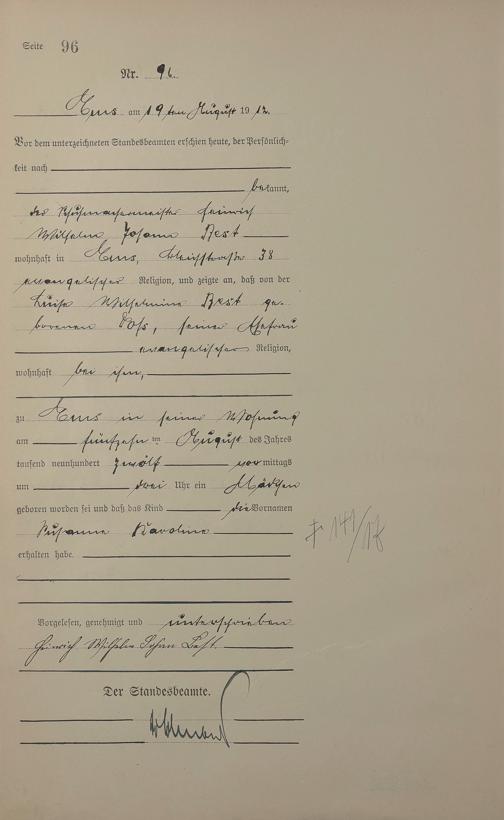 Seite 96
Nr. 96.
Ems am 19ten August 1912.
Vor dem unterzeichneten Standesbeamten erschien heute, der Persönlich-
keit nach
bekannt,
der Schuhmachermeister Heinrich
Wilhelm Johann Best
wohnhaft in Ems, Bleichstraße 38
evangelischer Religion, und zeigte an, daß von der
Luise Wilhelmine Best ge-
borenen Voß, seiner Ehefrau
evangelischer Religion,
wohnhaft bei ihm,
zu Ems in seiner Wohnung
am fünfzehnten August des Jahres
tausend neunhundert zwölf vormittags
um drei Uhr ein Mädchen
geboren worden sei und daß das Kind die Vornamen
Susanne Karoline
erhalten habe.
Vorgelesen, genehmigt und unterschrieben
Heinrich Wilhelm Johan Best.
Der Standesbeamte.